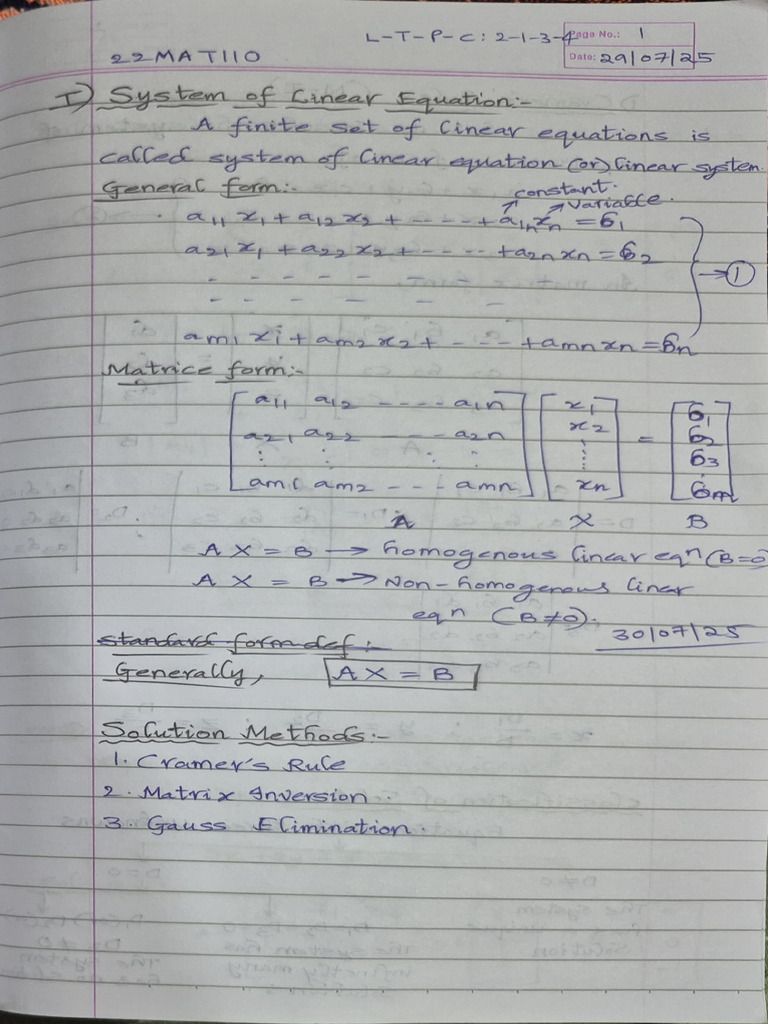 L-T-P-C: 2-1-3-4
Page No.: 1
22MAT110
Date: 29/07/25
I) System of Linear Equation:-
A finite set of linear equations is
called system of linear equation (or) linear system.
General form:-
constant.
variable.
a11 x1 + a12 x2 + ----- + a1n xn = b1
a21 x1 + a22 x2 + ----- + a2n xn = b2
- - - - - - -
→ ①
- - - - - -
am1 xi + am2 x2 + ---- + amn xn = bn
Matrice form:-
[a11 a12 ----- a1n] [x1] [b1]
[a21 a22 --- a2n] [x2] = [b2]
[⋮ ⋮ ⋮ ⋮] [⋮] [b3]
[am1 am2 --- amn] [xn] [bm]
A X B
AX = B → homogenous linear eqn (B=0)
AX = B → Non-homogenous linear
eqn (B≠0).
30/07/25
standard form def:
Generally, AX = B
Solution Methods:-
1. Cramer's Rule
2. Matrix Inversion.
3. Gauss Elimination.